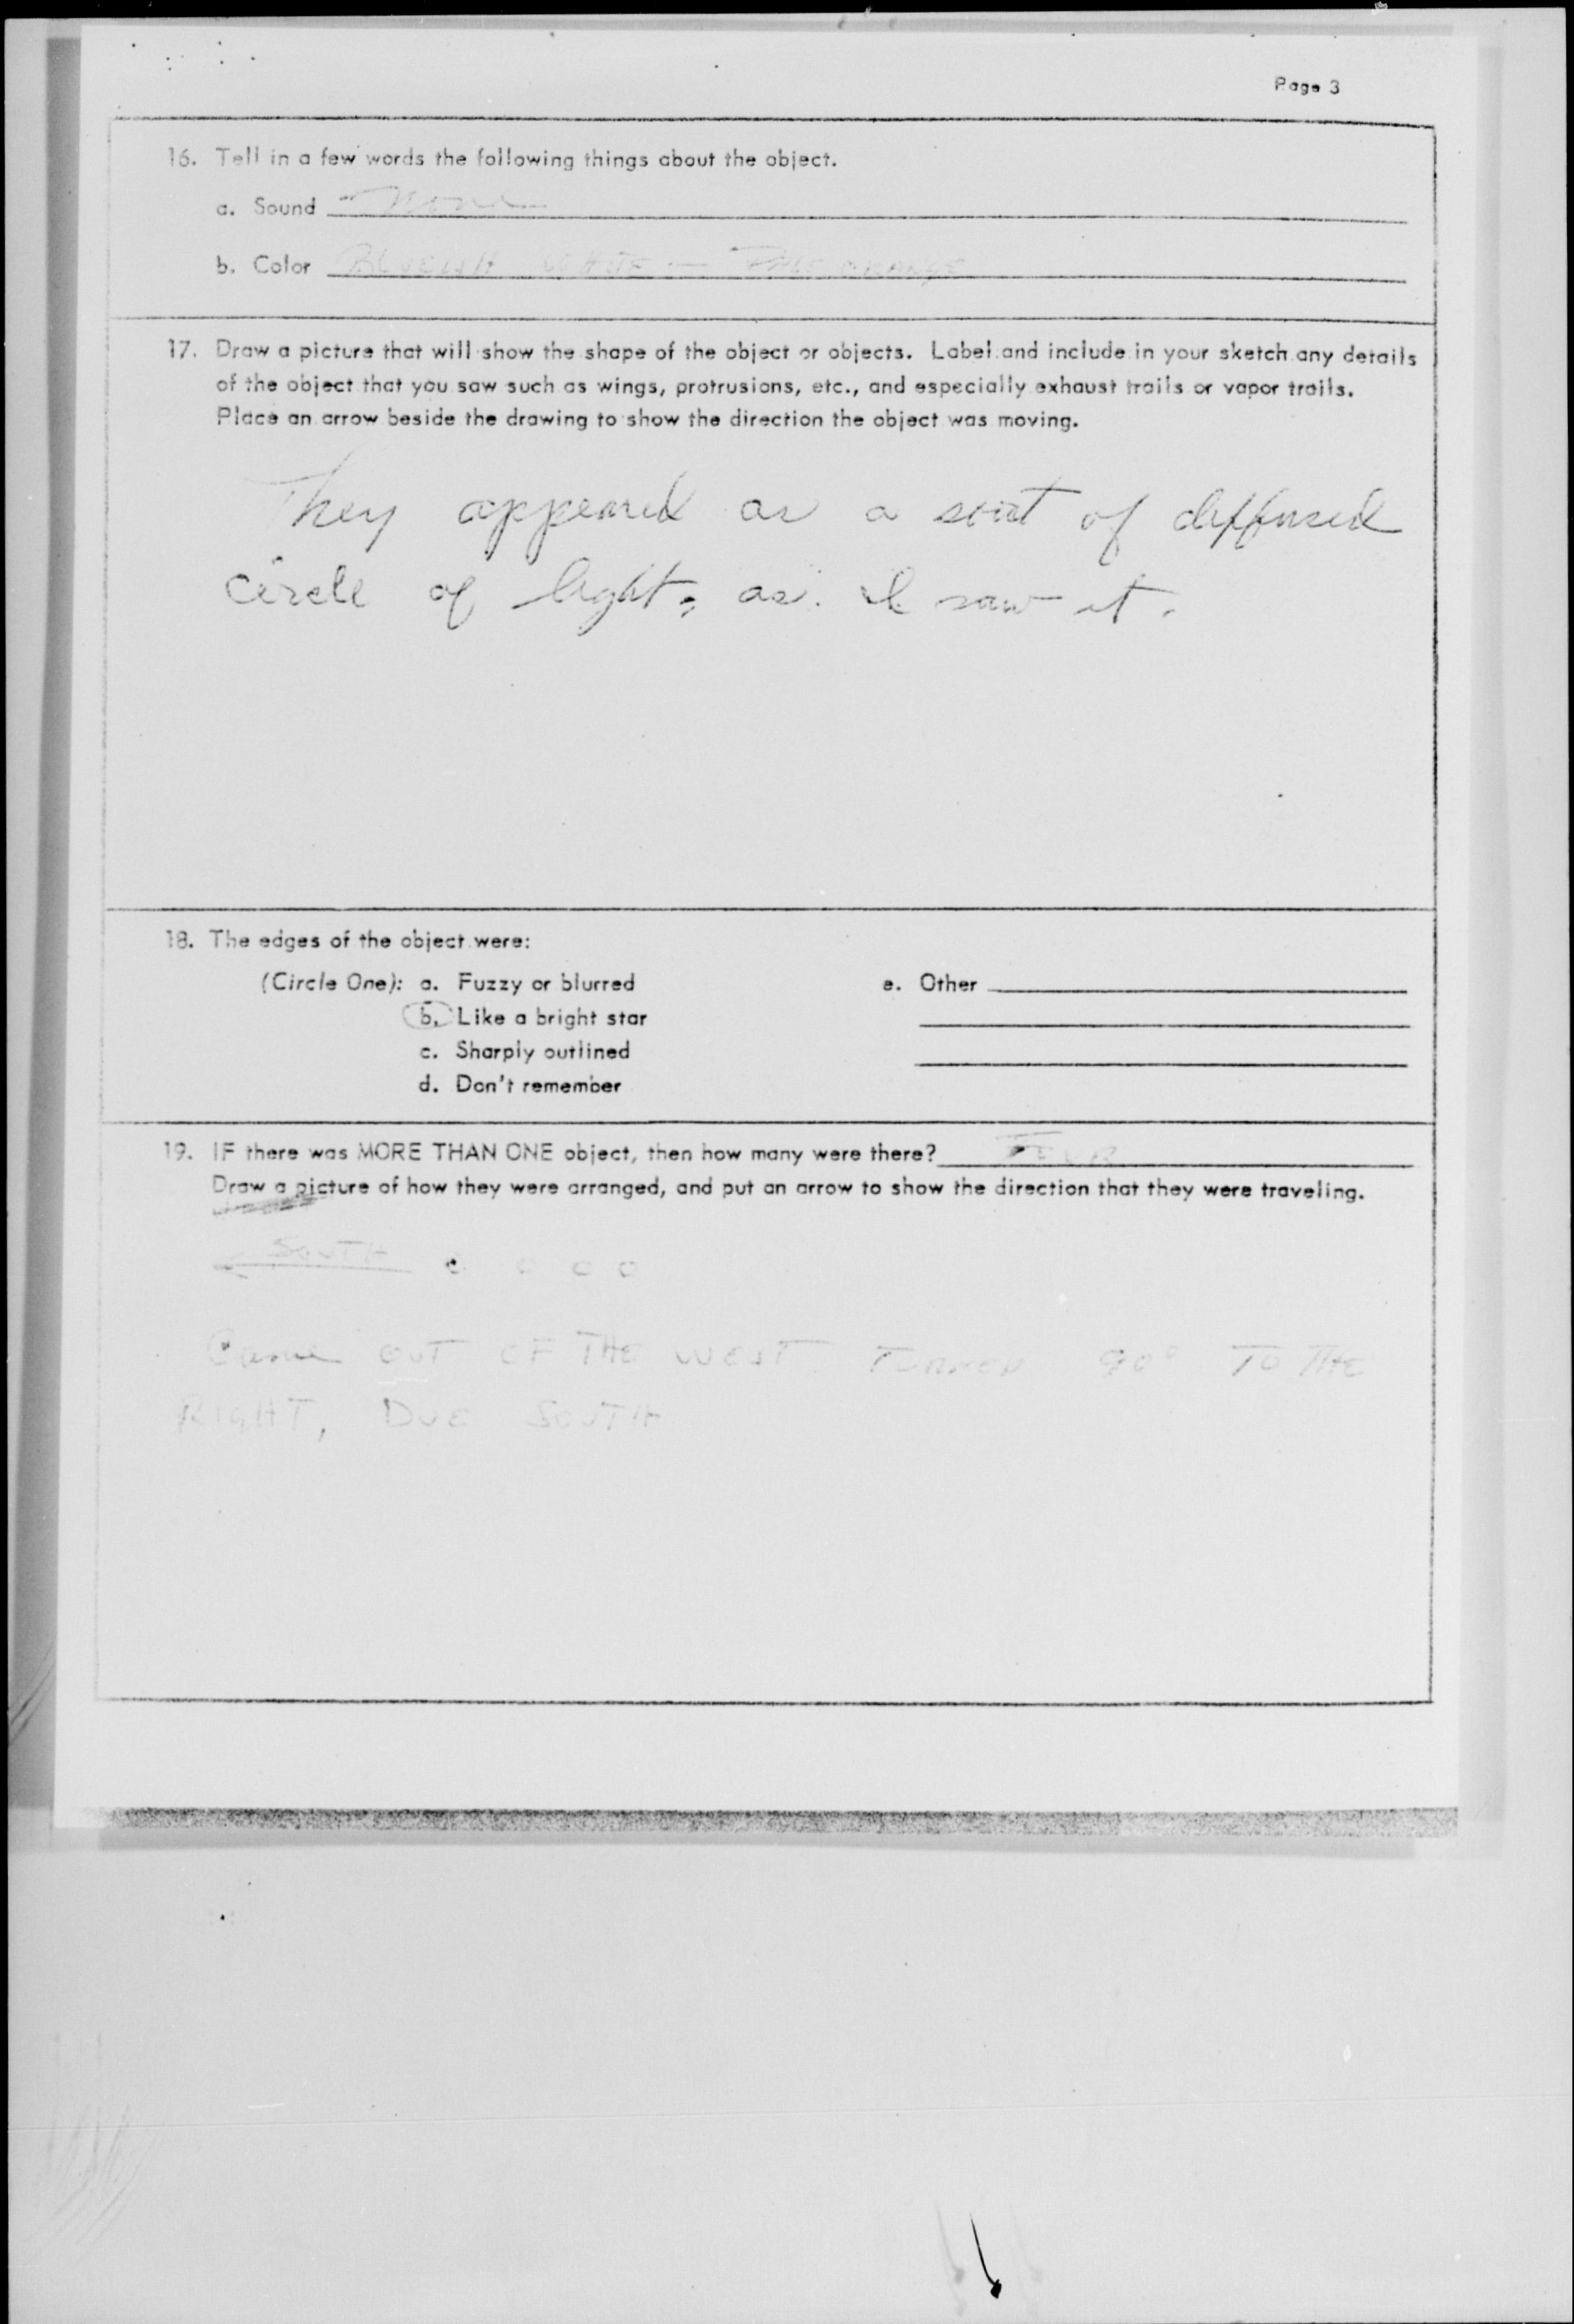 Page 3
16. Tell in a few words the following things about the object.
a. Sound None
b. Color BLUEISH WHITE — PALE ORANGE
17. Draw a picture that will show the shape of the object or objects. Label and include in your sketch any details
of the object that you saw such as wings, protrusions, etc., and especially exhaust trails or vapor trails.
Place an arrow beside the drawing to show the direction the object was moving.
They appeared as a sort of diffused
circle of light, as I saw it.
18. The edges of the object were:
(Circle One): a. Fuzzy or blurred
b. Like a bright star
c. Sharply outlined
d. Don't remember
e. Other
19. IF there was MORE THAN ONE object, then how many were there? FOUR
Draw a picture of how they were arranged, and put an arrow to show the direction that they were traveling.
SOUTH
Came OUT OF THE WEST TURNED 90° TO THE
RIGHT, DUE SOUTH